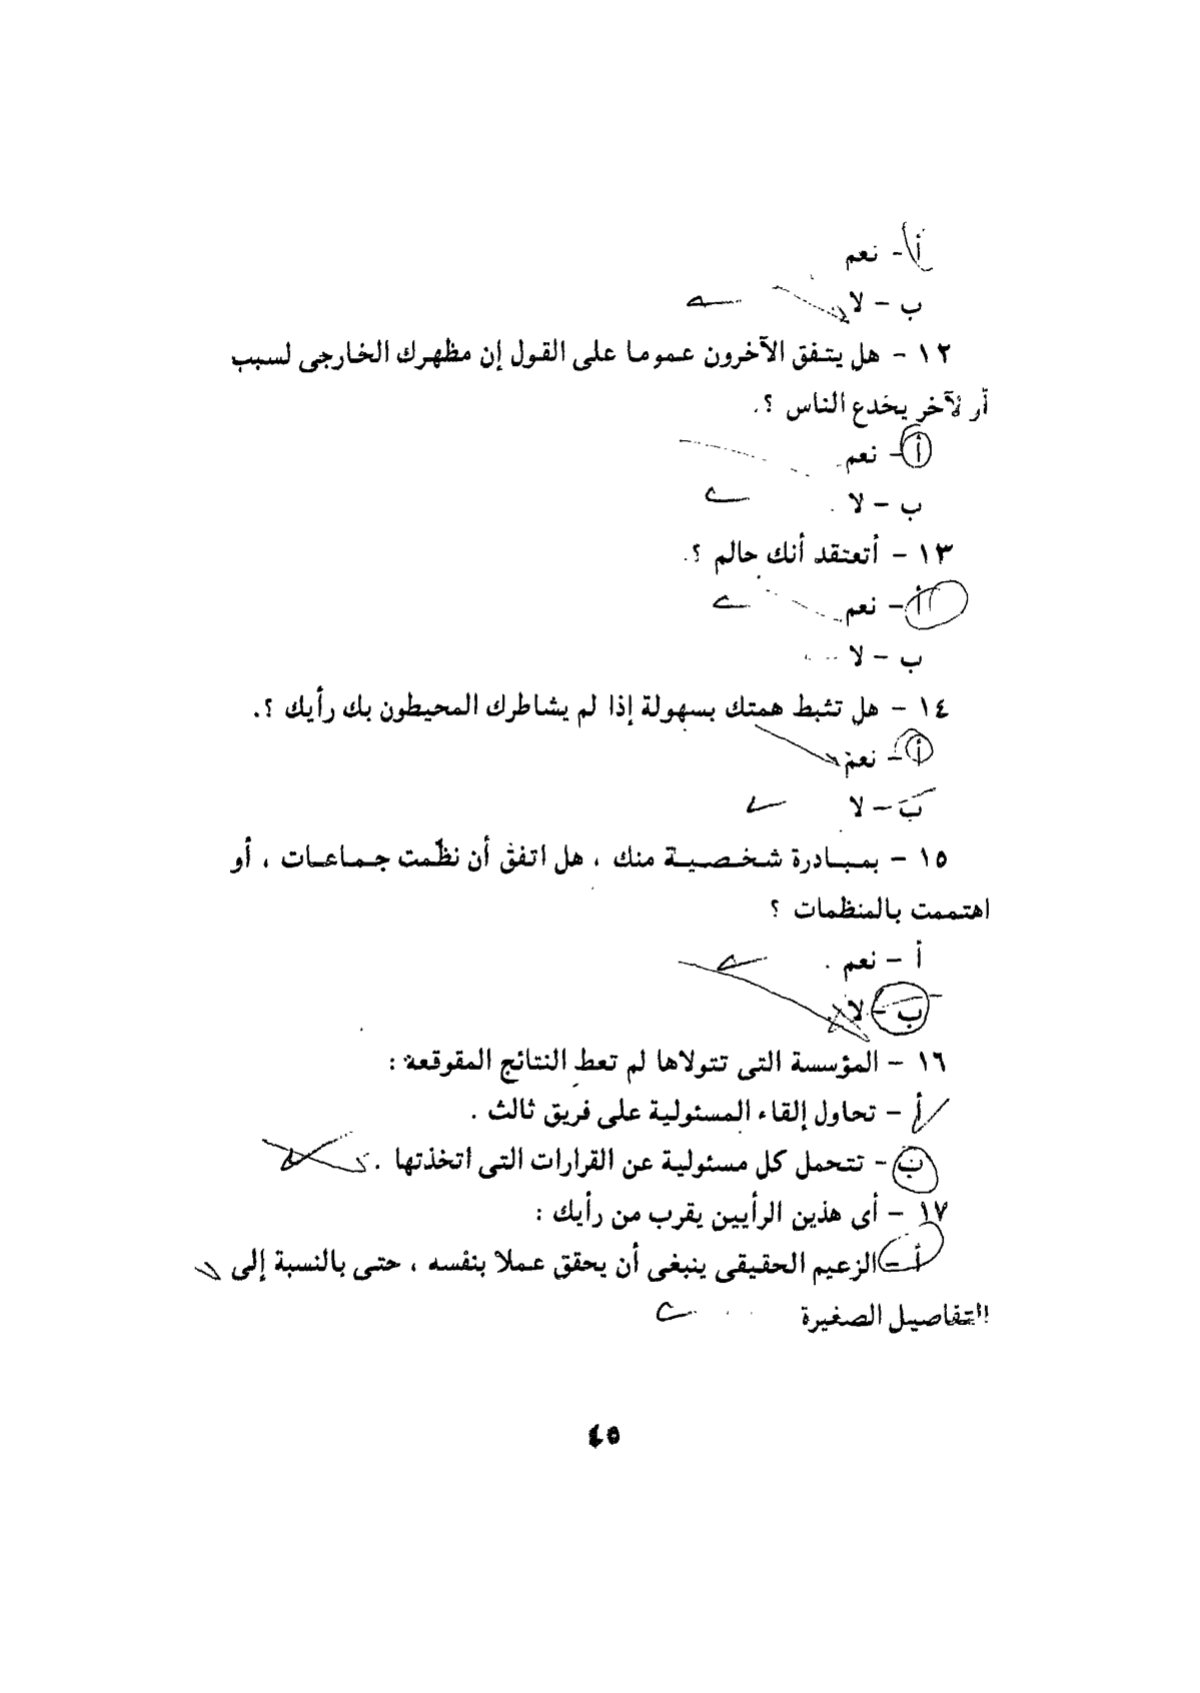 أ - نعم
ب - لا
١٢ - هل يتفق الآخرون عموما على القول إن مظهرك الخارجى لسبب
أو لآخر يخدع الناس ؟.
أ - نعم
ب - لا .
١٣ - أتعتقد أنك حالم ؟.
أ - نعم
ب - لا
١٤ - هل تثبط همتك بسهولة إذا لم يشاطرك المحيطون بك رأيك ؟.
أ - نعم
ب - لا
١٥ - بمبادرة شخصية منك ، هل اتفق أن نظمت جماعات ، أو
اهتممت بالمنظمات ؟
أ - نعم .
ب - لا
١٦ - المؤسسة التى تتولاها لم تعط النتائج المقوقعة :
أ - تحاول إلقاء المسئولية على فريق ثالث .
ب - تتحمل كل مسئولية عن القرارات التى اتخذتها .
١٧ - أى هذين الرأيين يقرب من رأيك :
أ - الزعيم الحقيقى ينبغى أن يحقق عملا بنفسه ، حتى بالنسبة إلى
التفاصيل الصغيرة
٤٥